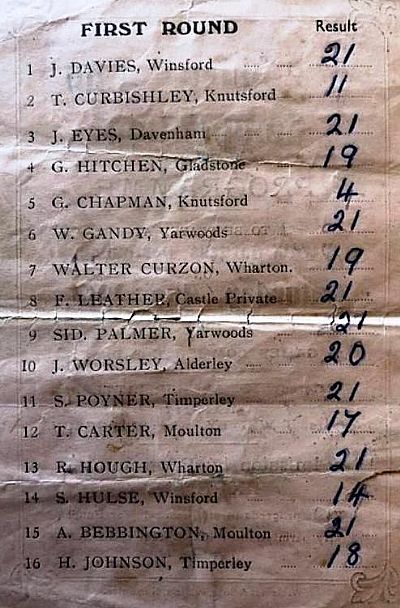 FIRST ROUND Result
1 J. DAVIES, Winsford 21
2 T. CURBISHLEY, Knutsford 11
3 J. EYES, Davenham 21
4 G. HITCHEN, Gladstone 19
5 G. CHAPMAN, Knutsford 4
6 W. GANDY, Yarwoods 21
7 WALTER CURZON, Wharton. 19
8 F. LEATHER, Castle Private 21
9 SID. PALMER, Yarwoods 21
10 J. WORSLEY, Alderley 20
11 S. POYNER, Timperley 21
12 T. CARTER, Moulton 17
13 R. HOUGH, Wharton 21
14 S. HULSE, Winsford 14
15 A. BEBBINGTON, Moulton 21
16 H. JOHNSON, Timperley 18